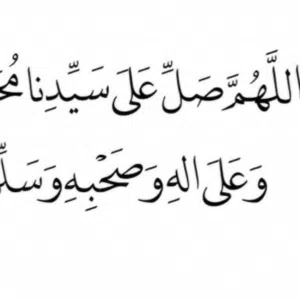 اللَّهُمَّ صَلِّ عَلَى سَيِّدِنا
وَعَلَى الِهِ وَصَحْبِهِ